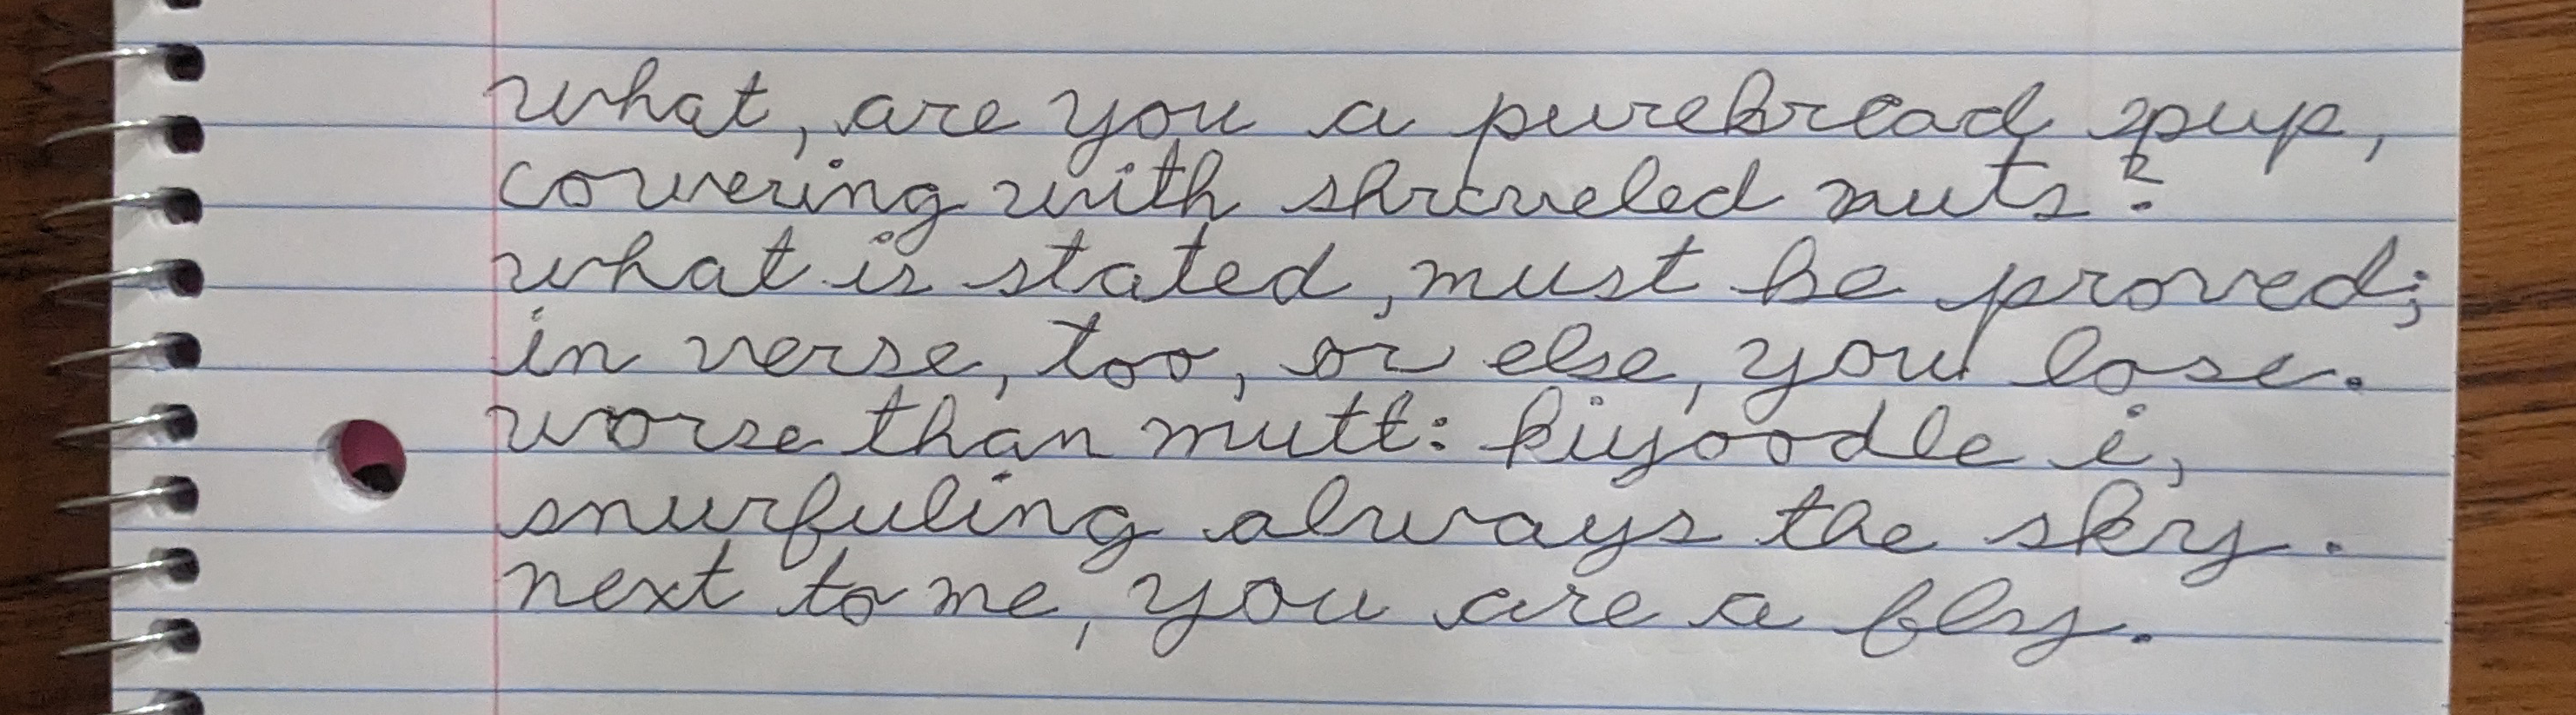 what, are you a purebread pup,
cowering with shriveled nuts?
what is stated, must be proved;
in verse, too, or else, you lose.
worse than mutt: kiyoodle i,
snurfuling always the sky.
next to me, you are a fly.